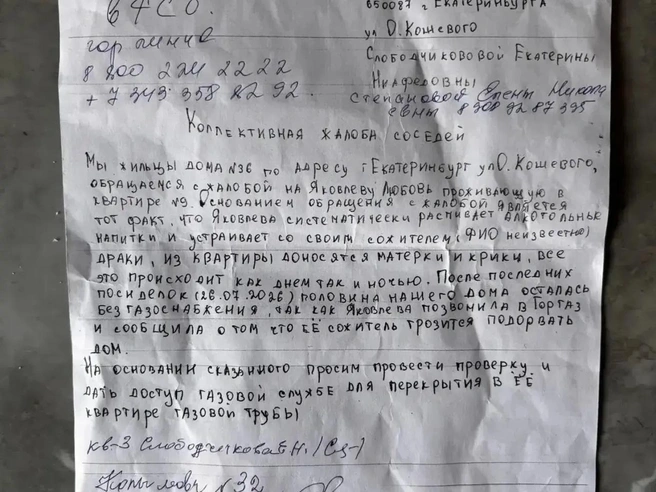 650087 г Екатеринбурга
ул О. Кошевого
Слободчиковой Екатерины
гор линия
8 800 224 22 22
+ 7 343 358 22 92.
Степановой Елены Никола
евны
Коллективная жалоба соседей
Мы жильцы дома №36 по адресу г Екатеринбург ул О. Кошевого,
обращаемся с жалобой на Яковлеву Любовь проживающую в
квартире №9. Основанием обращения с жалобой является
тот факт, что Яковлева систематически распивает алкогольные
напитки и устраивает со своим сожителем (ФИО неизвестно)
драки, из квартиры доносятся матерки и крики, все
это происходит как днем так и ночью. После последних
посиделок (26.07.2026) половина нашего дома осталась
без газоснабжения, так как Яковлева позвонила в Горгаз
и сообщила о том что её сожитель грозится подорвать
дом.
На основании сказанного просим провести проверку и
дать доступ газовой службе для перекрытия в её
квартире газовой трубы
кв-3 Слободчикова Н.
№32